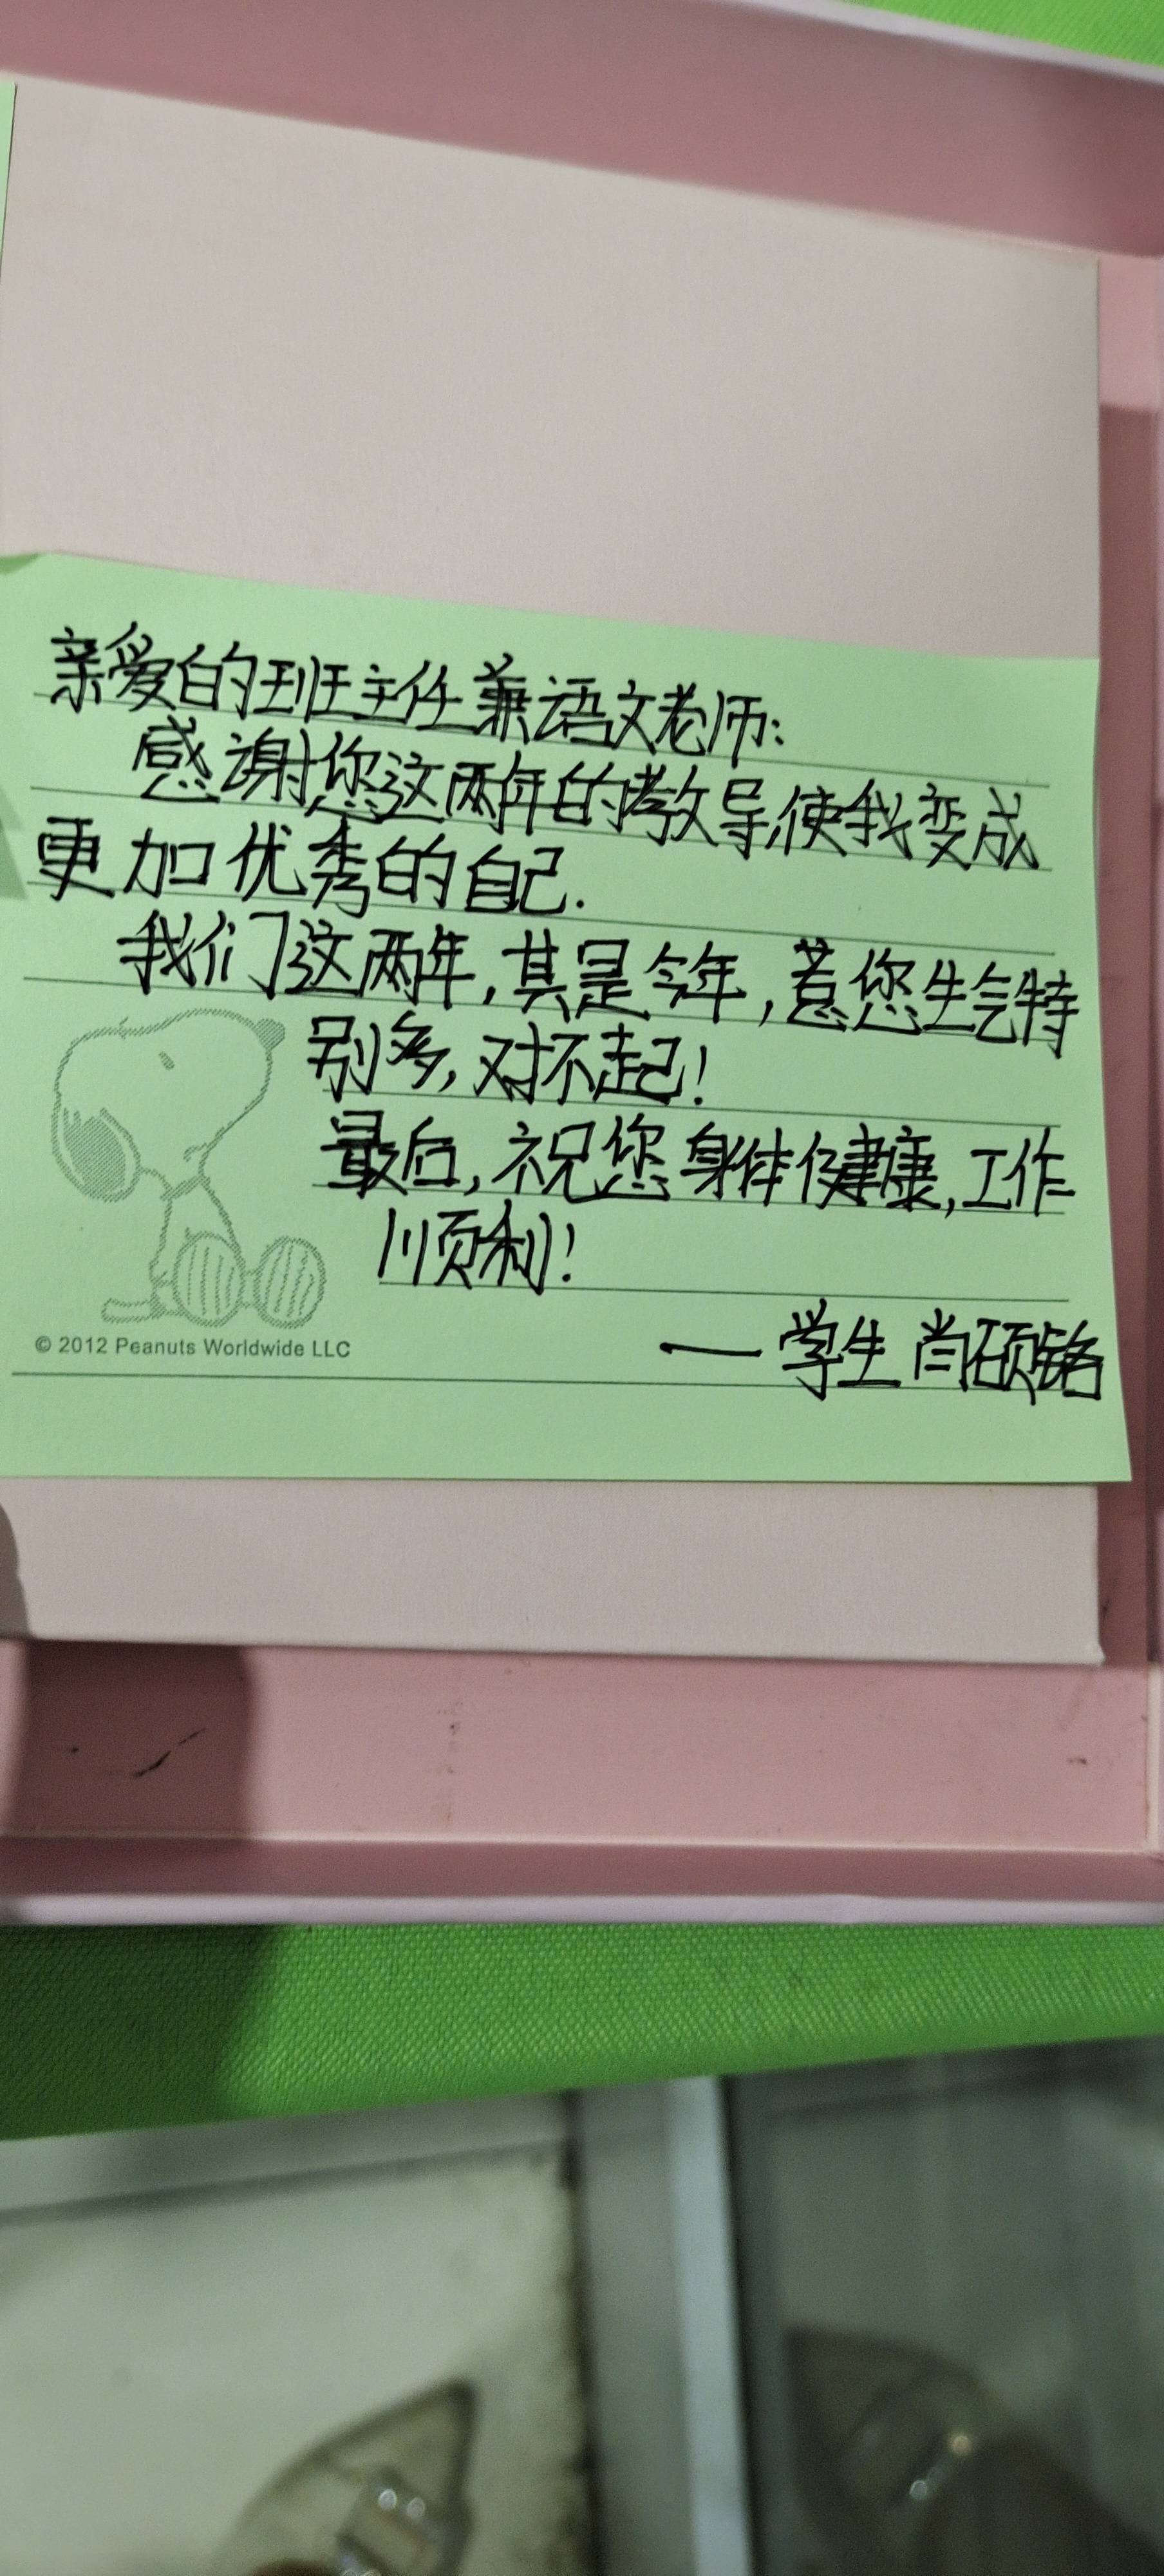 亲爱的班主任兼语文老师:
感谢您这两年的教导,使我变成
更加优秀的自己.
我们这两年,其是今年,惹您生气特
别多,对不起!
最后,祝您身体健康,工作
顺利!
© 2012 Peanuts Worldwide LLC
——学生 尚硕铭